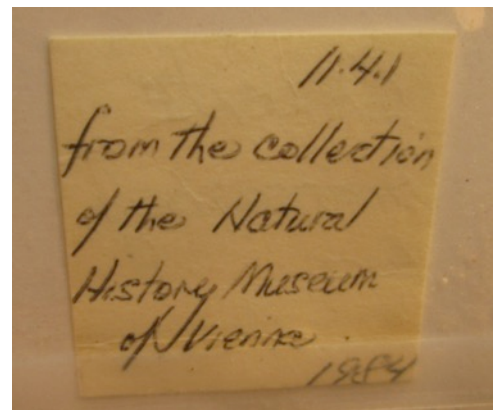 11.4.1
from the collection
of the Natural
History Museum
of Vienna.
1984